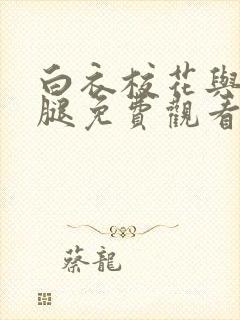 白衣校花與
腿免費觀看
蔡龍